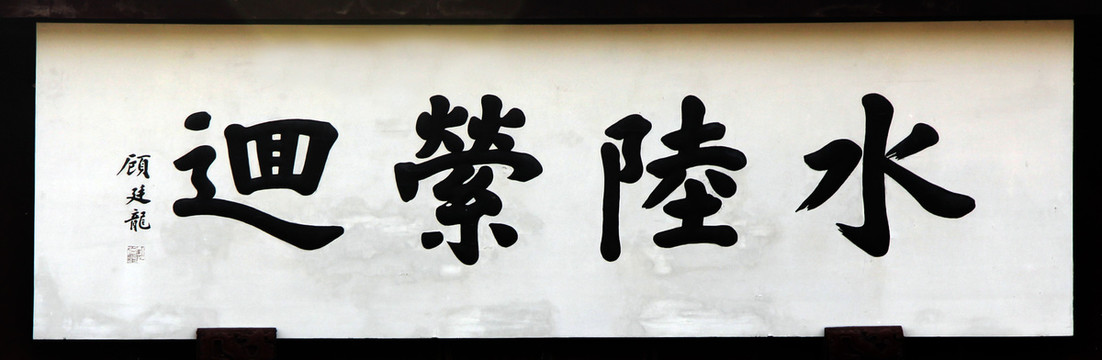 水陸縈迴
顧廷龍